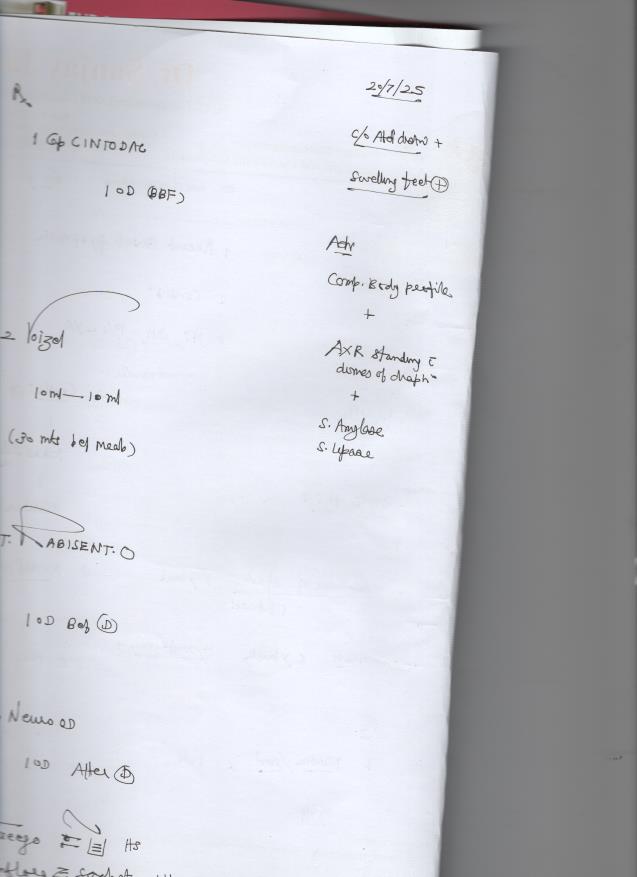 20/7/25
Rx
c/o Abd distn +
1 Cap CINTODAC
Swelling feet (+)
1 OD (BBF)
Adv
Comp. Body profile
+
2 Voizol
AXR standing c̄
domes of diaph
10ml — 10ml
+
S. Amylase
(30 mts bef meals)
S. Lipase
T. RABISENT.O
1 OD Bef (D)
Neuro OD
1 OD After (D)
HS